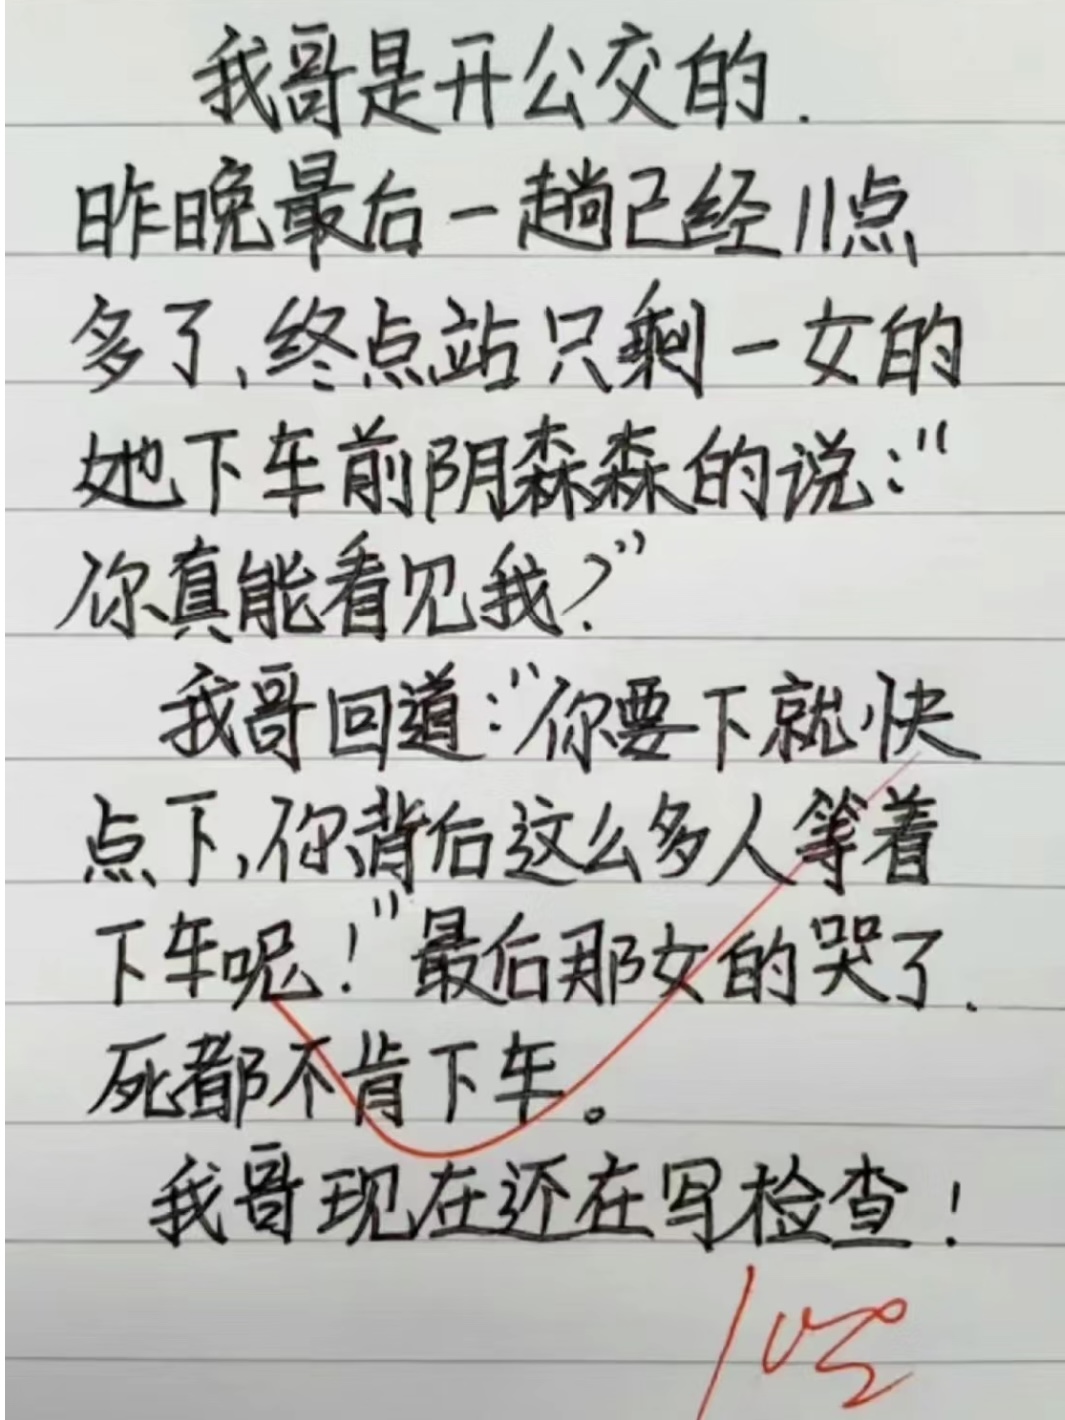 我哥是开公交的.
昨晚最后一趟已经11点
多了,终点站只剩一女的
她下车前阴森森的说:“
你真能看见我?”
我哥回道:“你要下就快
点下,你背后这么多人等着
下车呢!”最后那女的哭了.
死都不肯下车。
我哥现在还在写检查!